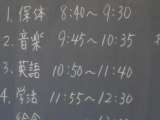 1. 保体 8:40～9:30
2. 音楽 9:45～10:35
3. 英語 10:50～11:40
4. 学活 11:55～12:30
給食